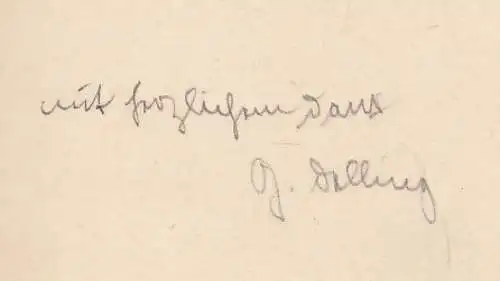 mit herzlichem Dank
G. Delling